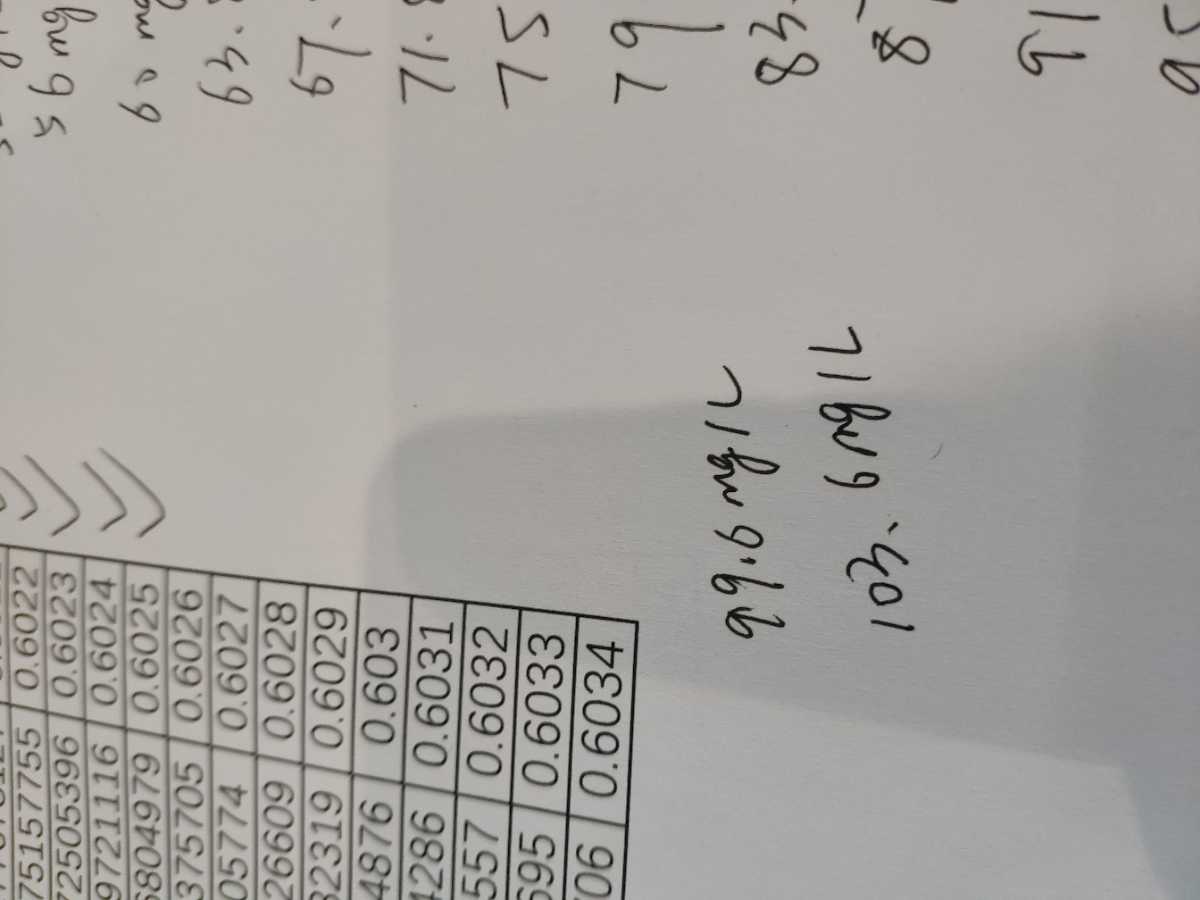 75157755 0.6022
72505396 0.6023
9721116 0.6024
6804979 0.6025
375705 0.6026
05774 0.6027
26609 0.6028
32319 0.6029
4876 0.603
67.
4286 0.6031
71.
557 0.6032
75
695 0.6033
79
706 0.6034
83.
99.6 mg/L
8
103.6 mg/L
91
95